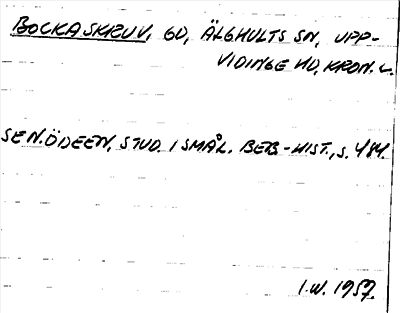 BOCKASKRUV, GD, ÄLGHULTS SN, UPP-
VIDINGE HD, KRON. L.
SE N. ÖDEEN, STUD. I SMÅL. BEB-HIST., S. 484.
I.W. 1957.